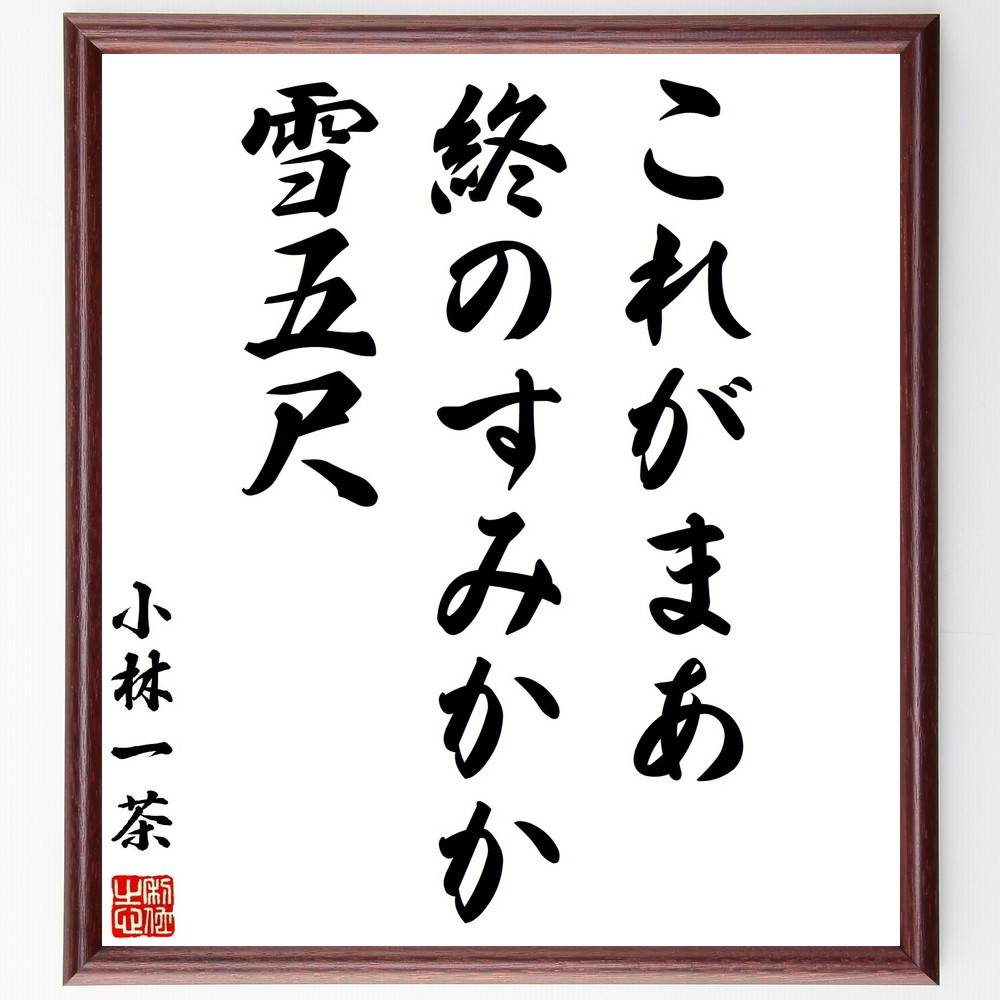 これがまあ
終のすみかか
雪五尺
小林一茶